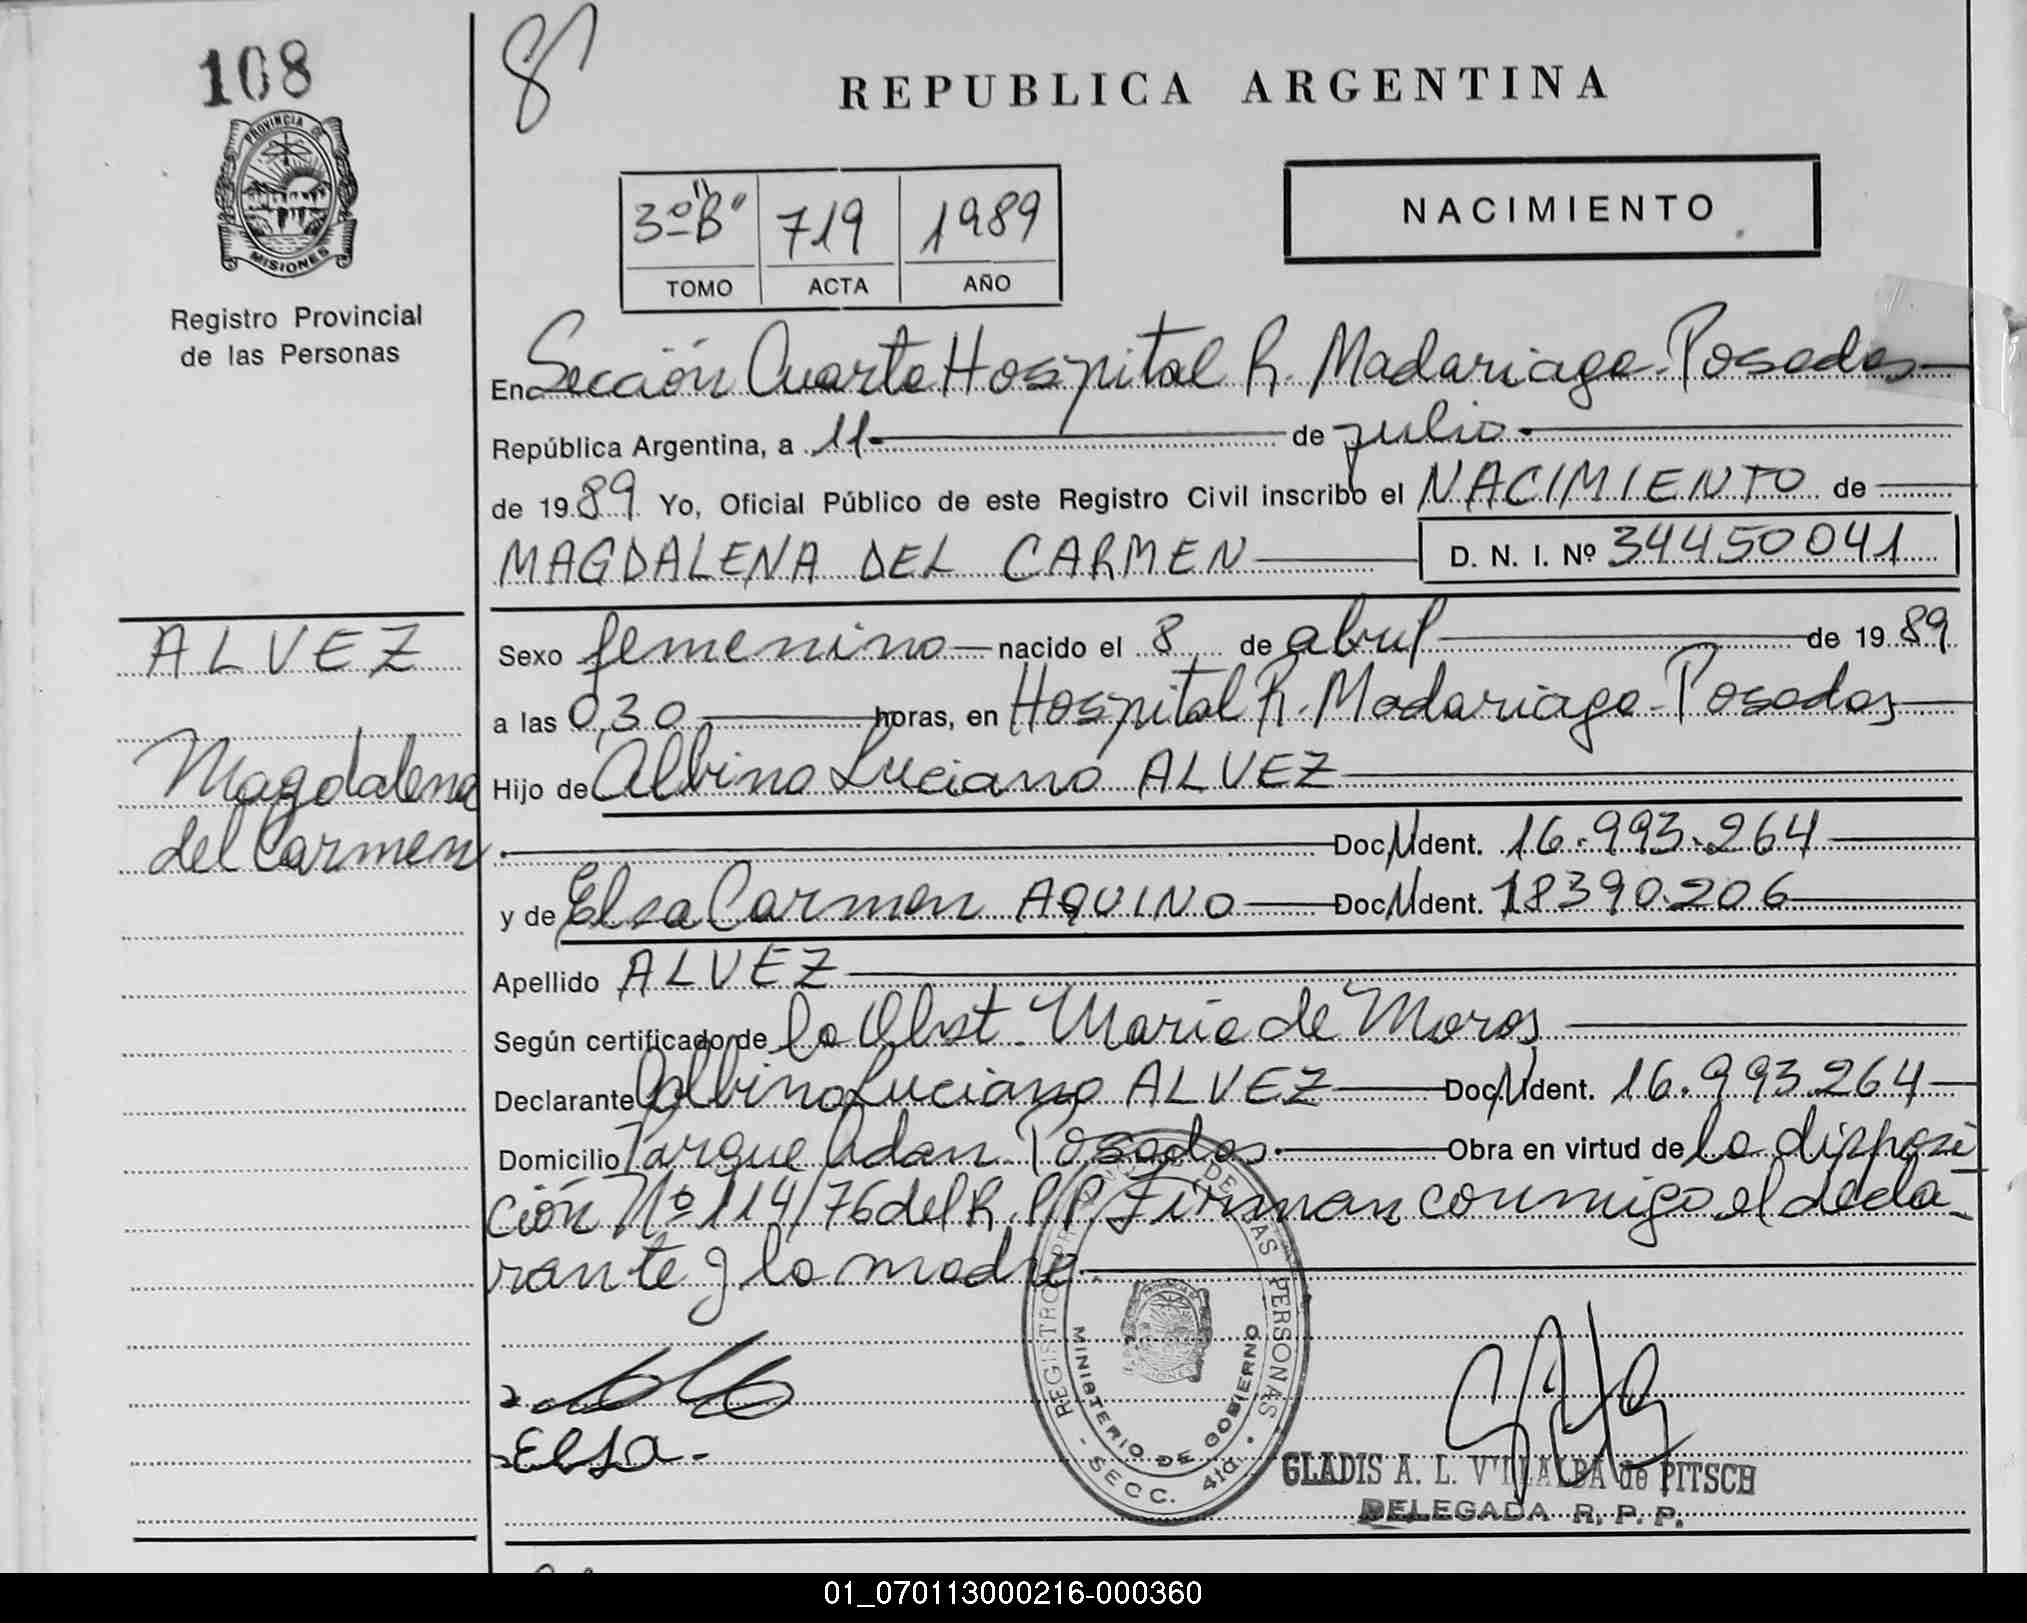 108
PROVINCIA DE
MISIONES
Registro Provincial
de las Personas
ALVEZ
Magdalena
del Carmen
8
REPUBLICA ARGENTINA
3º "B" 719 1989
TOMO ACTA AÑO
NACIMIENTO
En Sección Cuarta Hospital R. Madariaga - Posadas
República Argentina, a 11 de julio
de 1989 Yo, Oficial Público de este Registro Civil inscribo el NACIMIENTO de
MAGDALENA DEL CARMEN D. N. I. Nº 34450041
Sexo femenino nacido el 8 de abril de 1989
a las 0,30 horas, en Hospital R. Madariaga - Posadas
Hijo de Albino Luciano ALVEZ
Doc. Ident. 16.993.264
y de Elsa Carmen AQUINO Doc. Ident. 18390.206
Apellido ALVEZ
Según certificado de la Obst. Maria de Moros
Declarante Albino Luciano ALVEZ Doc. Ident. 16.993.264
Domicilio Parque Adan - Posadas. Obra en virtud de la disposi
ción Nº 114/76 del R.P.P. Firman conmigo el decla-
rante y la madre.
ELSA.-
REGISTRO PROVINCIAL DE LAS PERSONAS
MINISTERIO DE GOBIERNO
- SECC. 4ta. -
GLADIS A. L. VILLALBA de PITSCH
DELEGADA R. P. P.
01_070113000216-000360